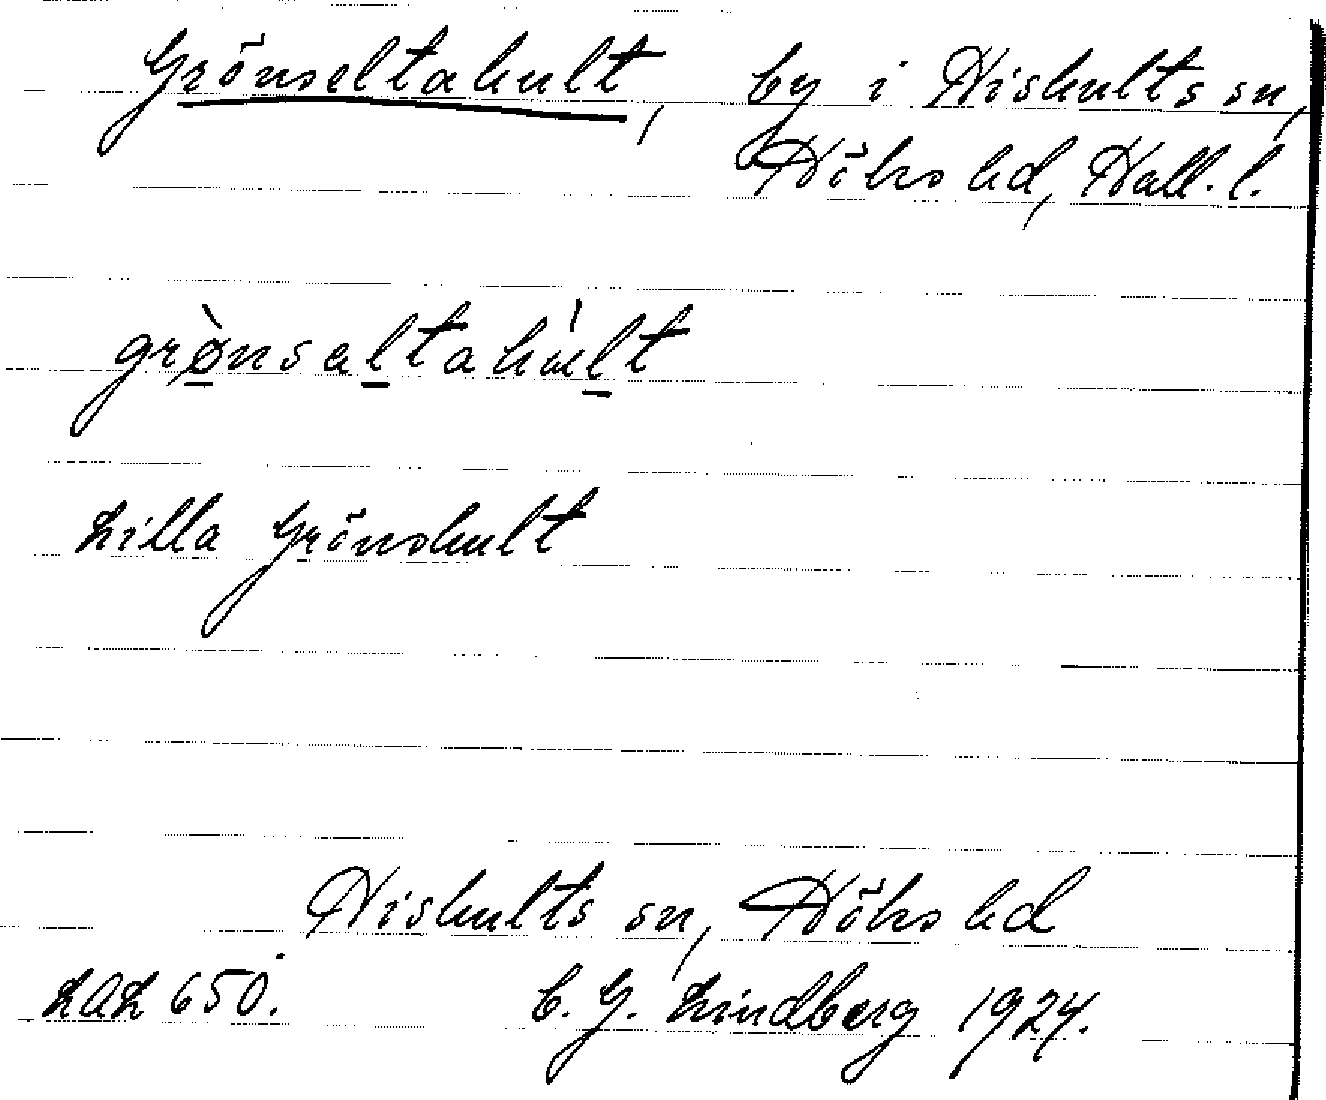 Grönseltahult, by i Hishults sn,
Höks hd, Hall. l.
grø̀nsaltahu̍lt
Lilla Grönshult
Hishults sn, Höks hd
LAL 650. C. G. Lindberg 1924.